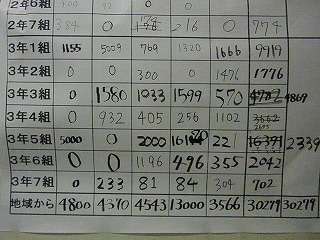 2年6組
2年7組 384 0 216 0 774
3年1組 1155 5009 769 1320 1666 9919
3年2組 0 0 300 0 1476 1776
3年3組 0 1580 1033 1599 570 4869
3年4組 0 932 405 256 1102
3年5組 5000 0 2000 221 2339
3年6組 0 0 1196 496 355 2042
3年7組 0 233 81 84 304 702
地域から 4800 4370 4543 13000 3566 30279 30279